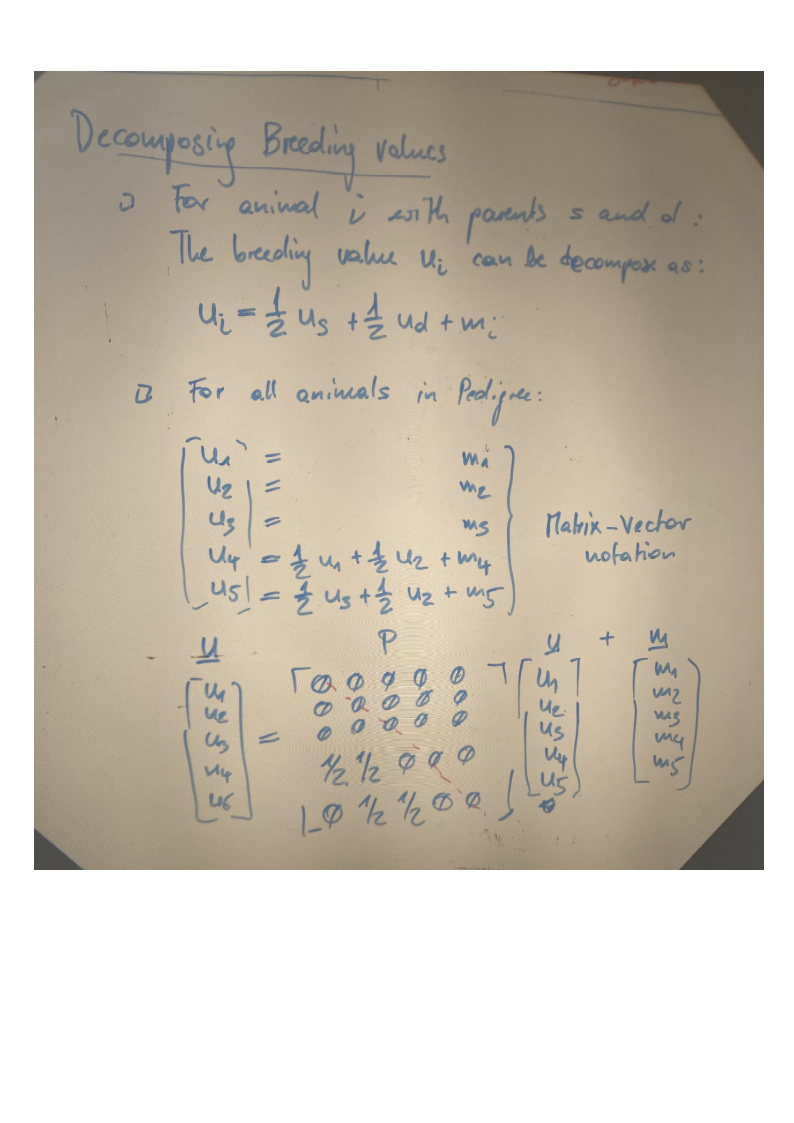 Decomposing Breeding values
For animal i with parents s and d:
The breeding value ui can be decompose as:
ui = 1/2 us + 1/2 ud + mi
For all animals in Pedigree:
u1 = m1
u2 = m2
u3 = m3
u4 = 1/2 u1 + 1/2 u2 + m4
u5 = 1/2 u3 + 1/2 u2 + m5
Matrix-Vector
notation
u P u + m
u1 0 0 0 0 0 u1 m1
u2 0 0 0 0 0 u2 m2
u3 = 0 0 0 0 0 u3 m3
u4 1/2 1/2 0 0 0 u4 m4
u5 0 1/2 1/2 0 0 u5 m5